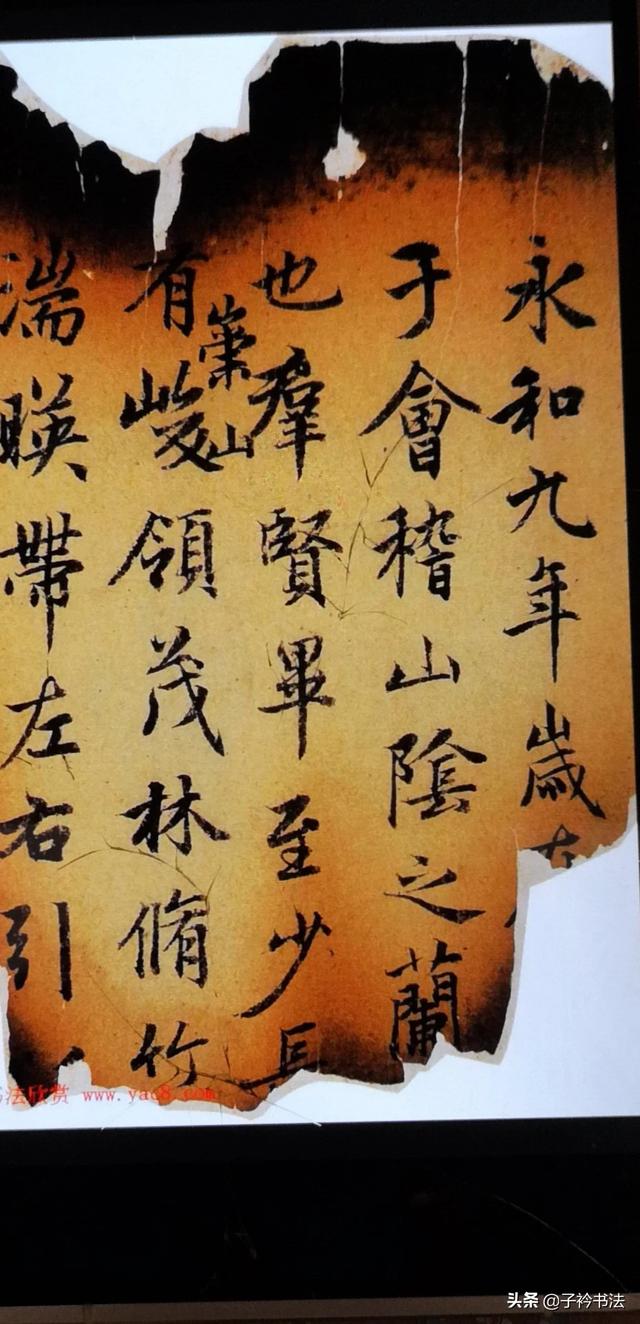 永和九年歲在
于會稽山陰之蘭
也羣賢畢至少長
有崇山峻領茂林脩竹
湍暎帶左右引
书法欣赏 www.yac8.com
头条 @子衿书法